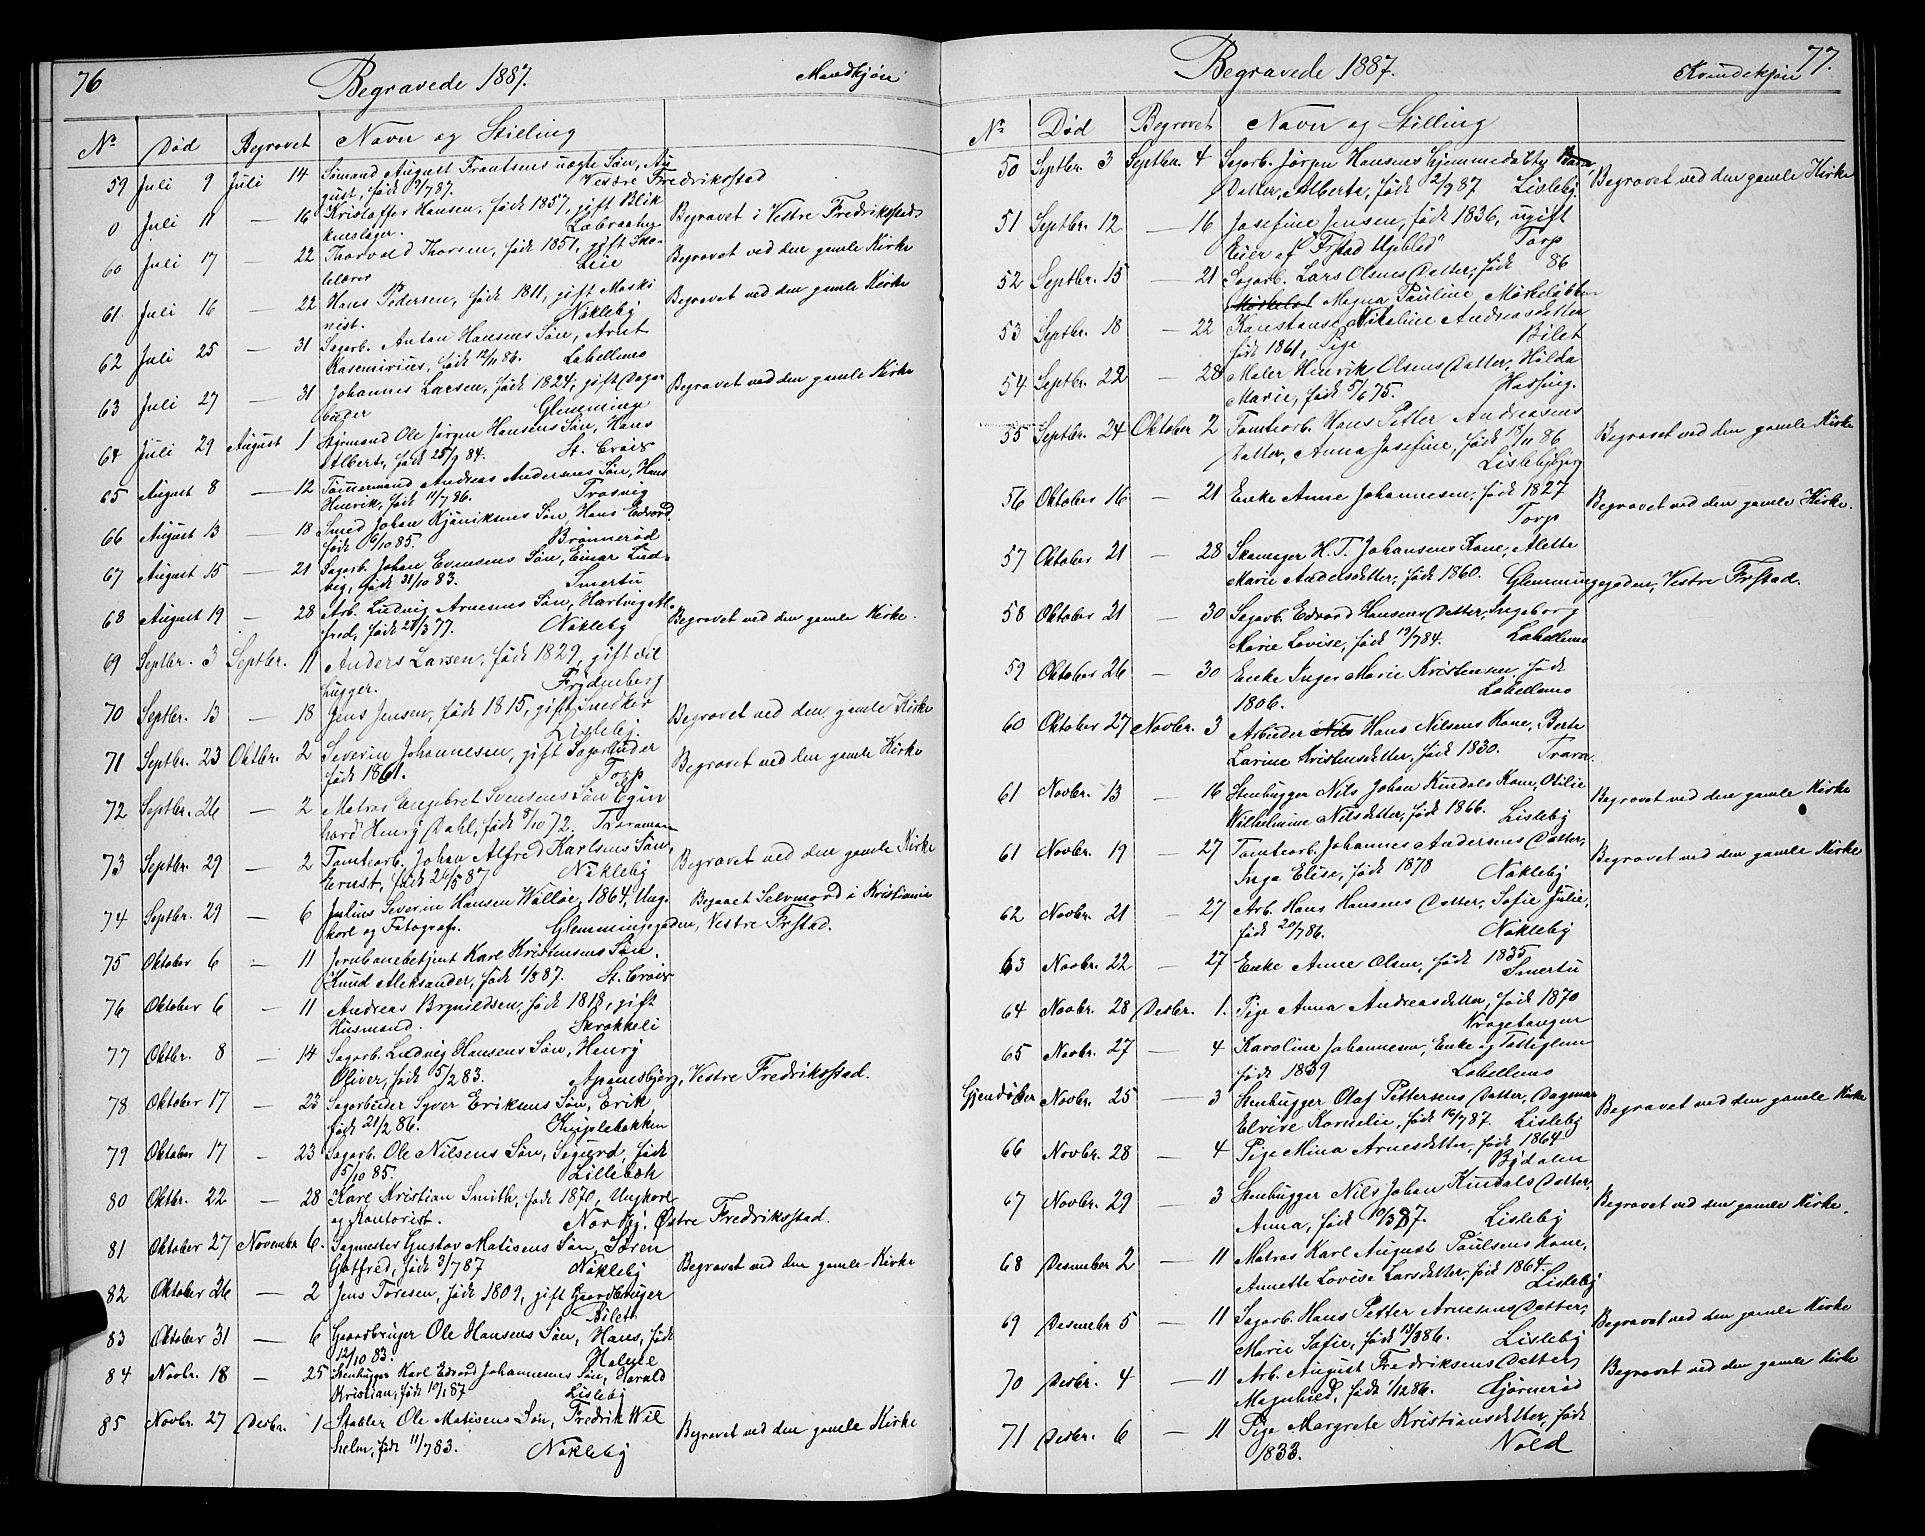 76 Begravede 1887. Mandkjøn
No Død Begravet Navn og Stilling
59 Juli 9 Juli 14 Simand August Frantsens uægte Søn, Au
gust, født 9/7 87. Vestre Fredriksstad
0 Juli 11 — 16 Kristoffer Hansen, født 1857, gift Blik
kenslager. Begravet i Vestre Fredriksstad
60 Juli 17 — 22 Thorvald Thorsen, født 1851, gift Sko-
lelærer Leie Begravet ved den gamle Kirke
61 Juli 16 — 22 Hans Pedersen, født 1811, gift Maski
nist. Nøkleby Begravet ved den gamle Kirke
62 Juli 25 — 31 Sagarb. Anton Hansens Søn, Arnt
Kasemirius, født 12/11 86. Labellmo
63 Juli 27 — 31 Johannes Larsen, født 1824, gift Dagar
beider Glemminge Begravet ved den gamle Kirke
64 Juli 29 August 1 Styrmand Ole Jørgen Hansens Søn, Hans
Albert, født 25/9 84. St. Croix
65 August 8 — 12 Tømmermand Andreas Andersens Søn, Hans
Henrik, født 11/7 86. Trosvig
66 August 13 — 18 Smed Johan Kjøniksens Søn, Hans Edvard
født 6/10 85. Brønnerød
67 August 15 — 21 Sagarb. Johan Evensens Søn, Einar Lud-
vig, født 31/10 83. Smertu
68 August 19 — 28 Arb. Ludvig Arnesens Søn, Hartvig Al
fred, født 28/3 77. Nøkleby Begravet ved den gamle Kirke.
69 Septbr. 3 Septbr. 11 Anders Larsen, født 1829, gift Fil
hugger. Frydenberg
70 Septbr. 13 — 18 Jens Jensen, født 1815, gift Snedker
Lisleby. Begravet ved den gamle Kirke
71 Septbr. 23 Oktbr. 2 Severin Johannesen, gift Sagarbeider
født 1861. Torp Begravet ved den gamle Kirke
72 Septbr. 26 — 2 Matros Engebret Svensens Søn Egin
hard Henry Dahl, født 8/10 72. Traraman
73 Septbr. 29 — 2 Tomtearb. Johan Alfred Karlsens Søn,
Ernst, født 26/5 87 Nøkleby Begravet ved den gamle Kirke
74 Septbr. 29 — 6 Julius Severin Hansen Walløe, 1864, Ung-
karl og Fotograf. Glemmingegaden, Vestre Frstad. Begaaet Selvmord i Kristiania
75 Oktober 6 — 11 Jernbanebetjent Karl Kristensens Søn,
Knud Aleksander, født 1/8 87. St. Croix
76 Oktober 6 — 11 Andreas Brynildsen, født 1818, gift
Husmand. Skrokkeli
77 Oktbr. 8 — 14 Sagarb. Ludvig Hansens Søn, Henry
Oliver, født 5/2 83. Apenesbjerg, Vestre Fredriksstad.
78 Oktober 17 — 23 Sagarbeider Syver Eriksens Søn, Erik
født 21/2 86. Kniplebakken
79 Oktober 17 — 23 Sagarb. Ole Nilsens Søn, Sigurd, født
5/10 85. Lillebæk
80 Oktbr. 22 — 28 Karl Kristian Smith, født 1870, Ungkarl
og Kontorist. Norby, Østre Fredriksstad.
81 Oktober 27 November 6. Sagmester Gustav Matisens Søn, Søren
Gotfred, født 3/7 87 Nøkleby Begravet ved den gamle Kirke
82 Oktober 26 — 2 Jens Toresen, født 1809, gift Gaardbruger
Bilet
83 Oktober 31 — 6 Gaardbruger Ole Hansens Søn, Hans, født
12/10 83.
84 Novbr. 18 — 25 Stenhugger Karl Edvard Johannesens Søn, Harald
Kristian, født 10/1 87 Lisleby
85 Novbr. 27 Desbr. 1 Stabler Ole Matisens Søn, Fredrik Wil
helm, født 11/7 83. Nøkleby Begravet ved den gamle Kirke
Begravede 1887. Kvindekjøn 77.
No Død Begravet Navn og Stilling
50 Septbr. 3 Septbr. 4 Sagarb. Jørgen Hansens hjemmedøbte
Datter, Alberta, født 2/9 87 Lisleby Begravet ved den gamle Kirke
51 Septbr. 12 — 16 Josefine Jensen, født 1836, ugift
Eier af "Frstad Ugeblad" Torp
52 Septbr. 15 — 21 Sagarb. Lars Olsens Datter, født 86
Magna Pauline
53 Septbr. 18 — 22 Konstanse Nikoline Andreasdatter
født 1861, Pige Bilet
54 Septbr. 22 — 28 Maler Henrik Olsens Datter, Hilda
Marie, født 5/6 75. Hassing.
55 Septbr. 24 Oktober 2 Tomtearb. Hans Petter Andreasens
Datter, Anna Josefine, født 18/11 86
Lislebybjerg Begravet ved den gamle Kirke
56 Oktober 16 — 21 Enke Anne Johannesen, født 1827
Torp Begravet ved den gamle Kirke.
57 Oktober 21 — 28 Skomager H. T. Johansens Kone, Alette
Marie Andersdatter, født 1860. Glemmingegaden, Vestre Frstad.
58 Oktober 21 — 30 Sagarb. Edvard Hansens Datter, Ingeborg
Marie Lovise, født 19/7 84. Labellmo
59 Oktober 26 — 30 Enke Inger Marie Kristensen, født
1806. Labellmo
60 Oktober 27 Novbr. 3 Arbeider Nils Hans Nilsens Kone, Berte
Larine Kristensdatter, født 1830. Trara
61 Novbr. 13 — 16 Stenhugger Nils Johan Kindals Kone, Otilie
Wilhelmine Nilsdatter, født 1866. Lisleby Begravet ved den gamle Kirke
61 Novbr. 19 — 27 Tomtearb. Johannes Andersens Datter,
Inga Elise, født 1878 Nøkleby Begravet ved den gamle Kirke
62 Novbr. 21 — 27 Arb. Hans Hansens Datter, Sofie Julie,
født 20/7 86. Nøkleby
63 Novbr. 22 — 27 Enke Anne Olsen, født 1835
Smertu
64 Novbr. 28 Desbr. 1. Pige Anna Andreasdatter, født 1870
Kragetangen
65 Novbr. 27 — 4 Karoline Johannesen, Enke og Fattiglem
født 1839 Labellmo
Gjendøber Novbr. 25 — 3 Stenhugger Olaf Pettersens Datter, Dagmar
Elvine Kornelie, født 16/7 87. Lisleby Begravet ved den gamle Kirke
66 Novbr. 28 — 4 Pige Mina Arnesdatter, født 1864
Bydalen
67 Novbr. 29 — 3 Stenhugger Nils Johan Kindals Datter,
Anna, født 10/3 87. Lisleby Begravet ved den gamle Kirke.
68 Desember 2 — 11 Matros Karl August Paulsens Kone,
Annette Lovise Larsdatter, født 1864.
Lisleby
69 Desember 5 — 11 Sagarb. Hans Petter Arnesens Datter,
Marie Sofie, født 13/8 86. Lisleby Begravet ved den gamle Kirke
70 Desbr. 4 — 11 Arb. August Fredriksens Datter
Magnhild, født 1/12 86. Bjørnerød Begravet ved den gamle Kirke
71 Desbr. 6 — 11 Pige Margrete Kristiansdatter, født
1833. Nold